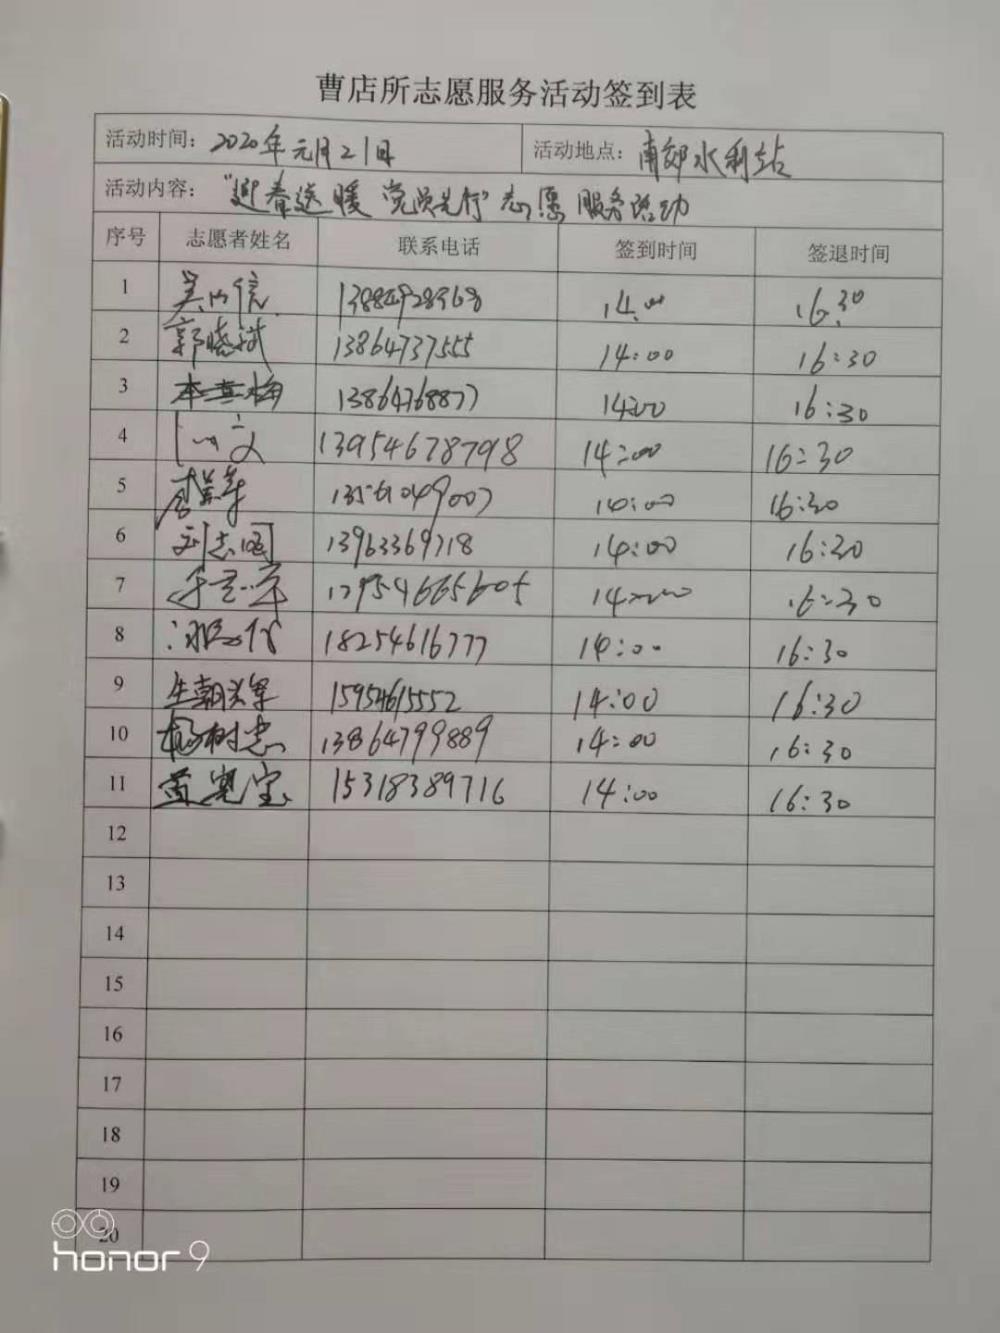 曹店所志愿服务活动签到表
活动时间: 2020年元月21日 活动地点: 南郊水利站
活动内容: "迎春送暖 党员先行"志愿服务活动
序号 志愿者姓名 联系电话 签到时间 签退时间
1 14:00 16:30
2 郭晓斌 13864737555 14:00 16:30
3 13864768877 14:00 16:30
4 139546787918 14:00 16:30
5 16:30
6 刘志国 13963369718 14:00 16:30
7 16:30
8 18254616777 14:00 16:30
9 15954615552 14:00 16:30
10 杨树忠 13864799889 14:00 16:30
11 15318389716 14:00 16:30
12
13
14
15
16
17
18
19
20
honor 9